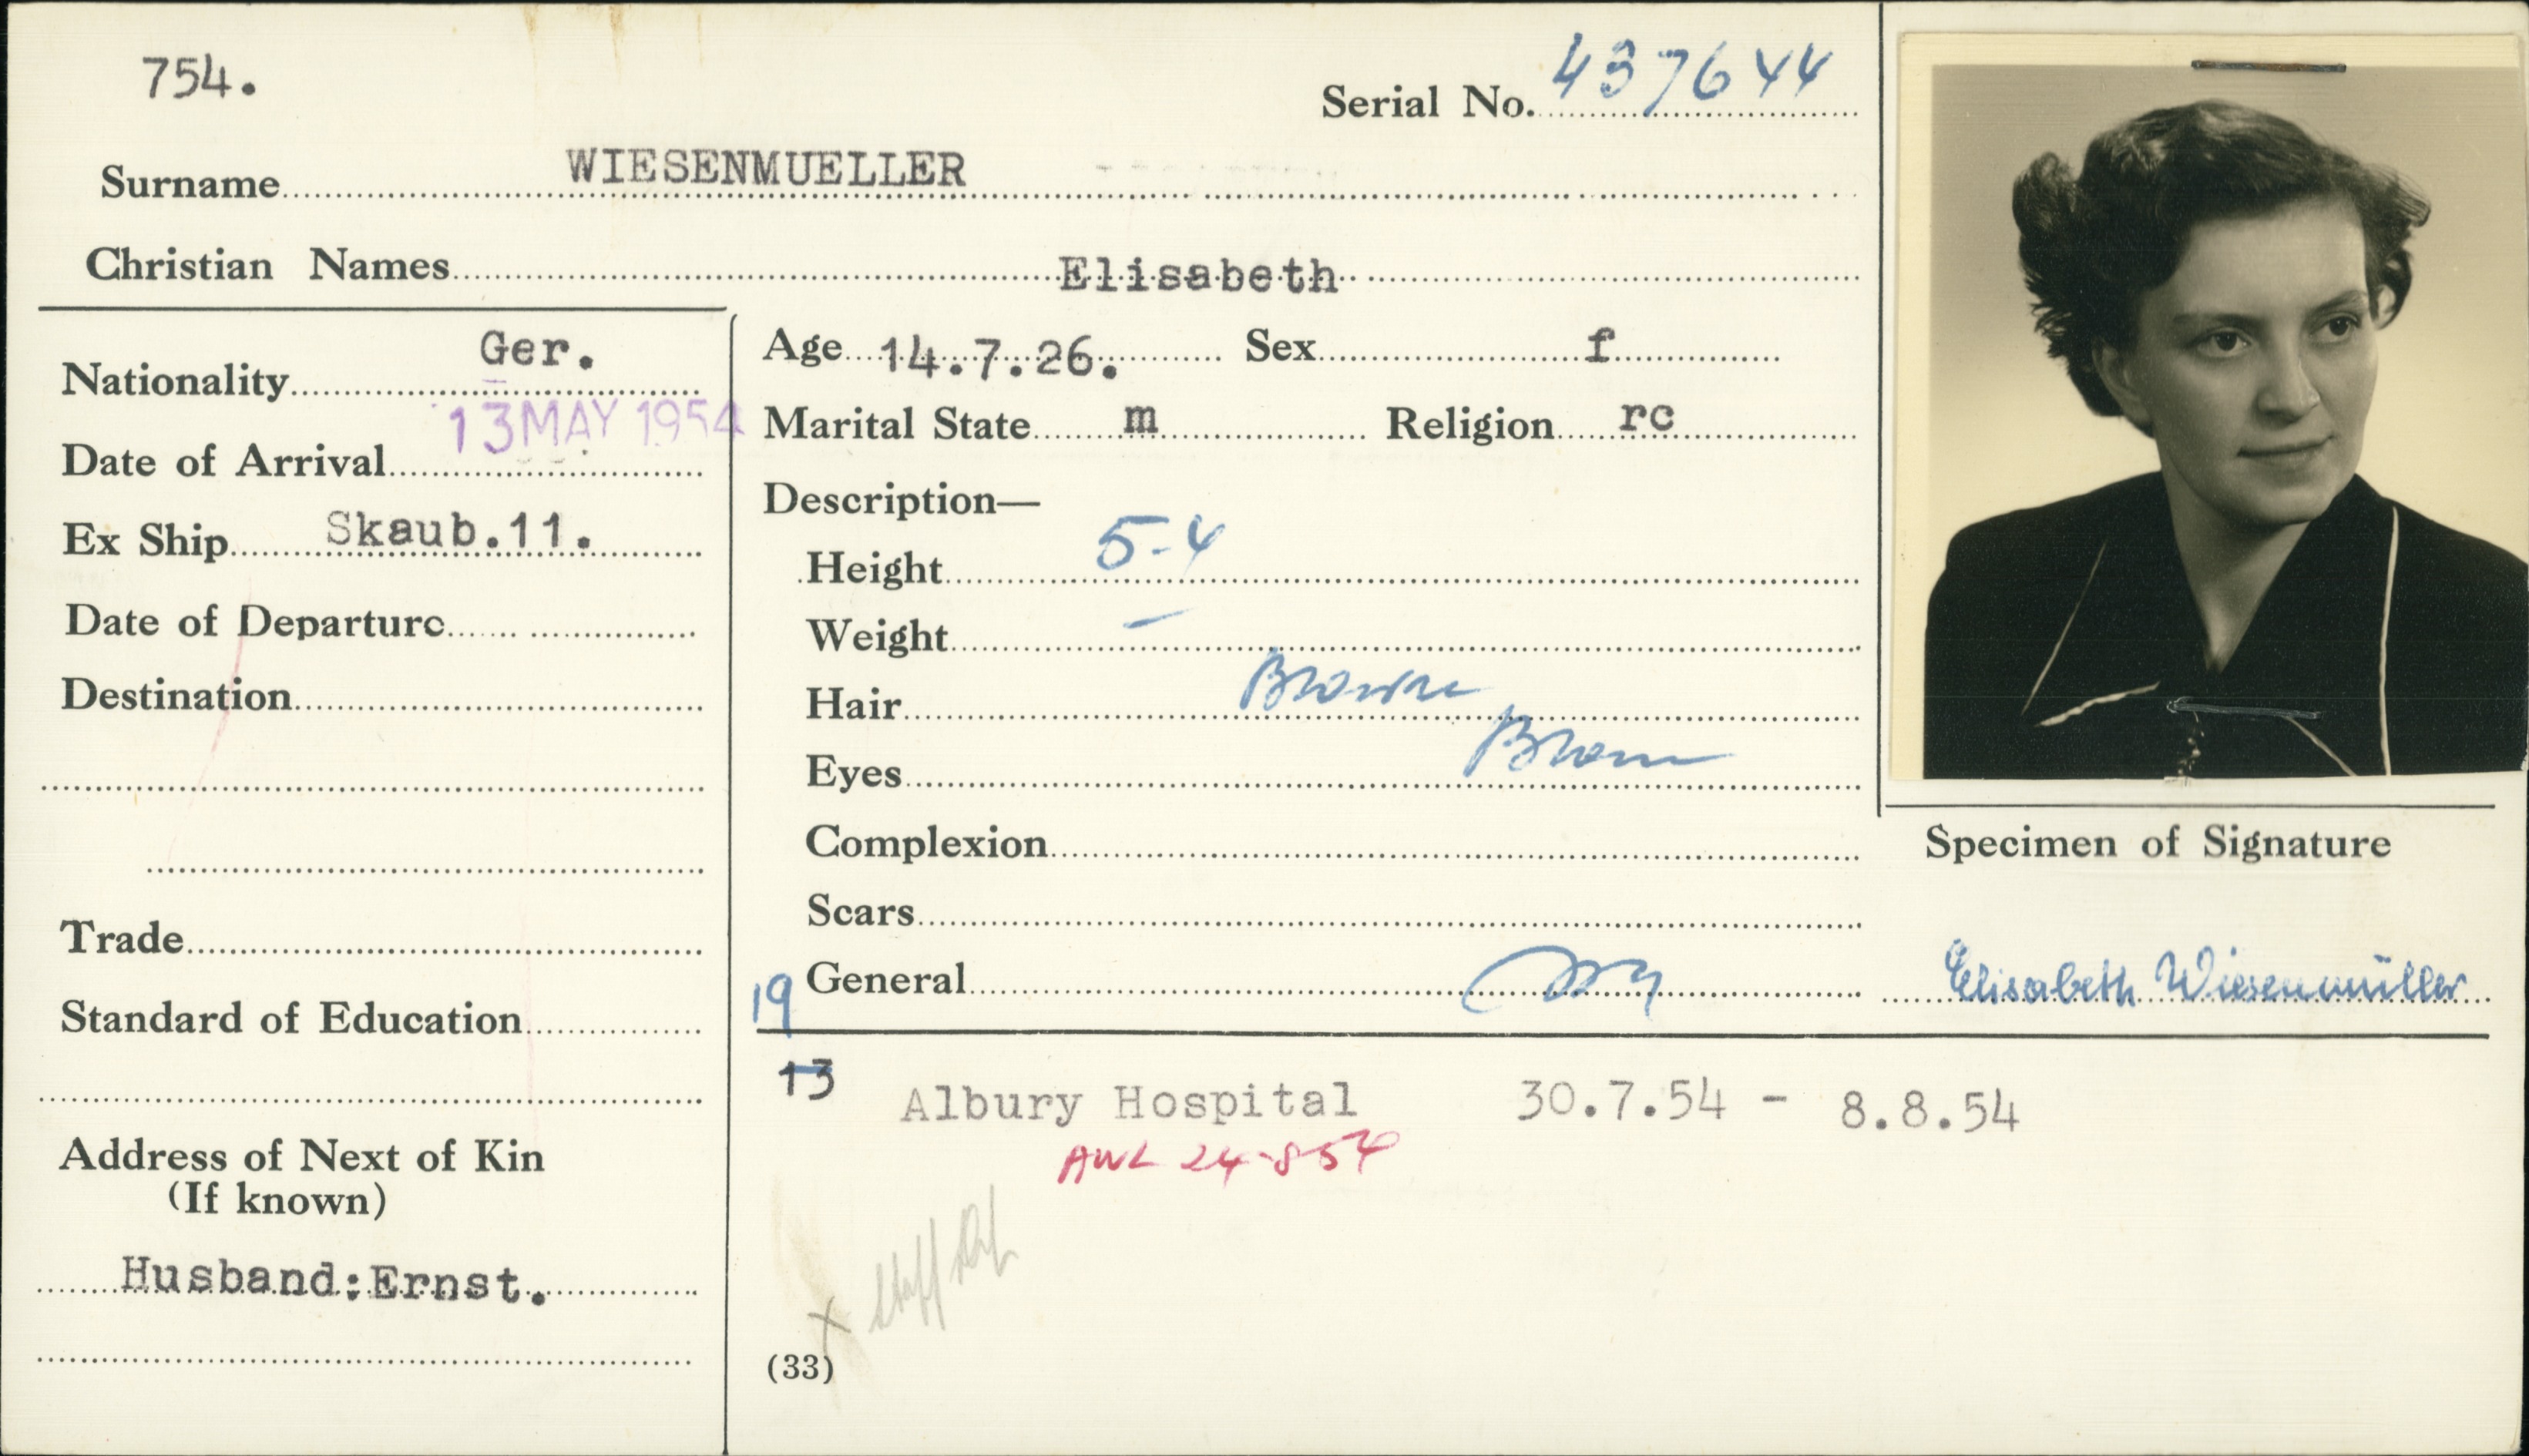 754.
Serial No. 437644
Surname WIESENMUELLER
Christian Names Elisabeth
Nationality Ger.
Date of Arrival 13 MAY 1954
Ex Ship Skaub.11.
Date of Departure
Destination
Trade
Standard of Education
Address of Next of Kin
(If known)
Husband:Ernst.
Age 14.7.26. Sex f
Marital State m Religion rc
Description—
Height 5-4
Weight –
Hair Brown
Eyes Brown
Complexion
Scars
General
19
13 Albury Hospital 30.7.54 - 8.8.54
AWL 24-8-54
x Staff
(33)
Specimen of Signature
Elisabeth Wiesenmüller